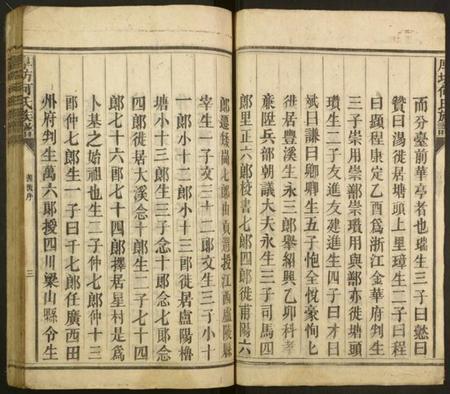 厚坊何氏族譜
而分臺前華亭者也瑞生三子曰懸曰
贊曰湯徙居塘頭上里璋生二子曰程
曰顥程康定乙酉為浙江金華府判生
三子崇用崇鄯崇瓚用與鄯亦徙塘頭
瓚生二子友進友建進生四子曰才曰
斌曰謙曰卿卿生五子
徙居豐溪生永三郎舉紹興乙卯科孝
廉陞兵部朝議大夫永生三子司馬四
郎里正六郎校書七郎四郎徙莆陽六
郎遷
宰生一子文三十二郎文生三子小十
一郎小十二郎小十三郎徙居廬陽櫓
塘小十三郎生三子念十郎念七郎念
四郎徙居大溪念十郎生二子七十四
郎七十六郎七十四郎擇居星村是為
卜基之始祖也生二子仲七郎仲十三
郎仲七郎生一子曰千七郎任廣西田
州府判生萬六郎授四川梁山縣令生
厚坊何氏族譜
舊後序
三